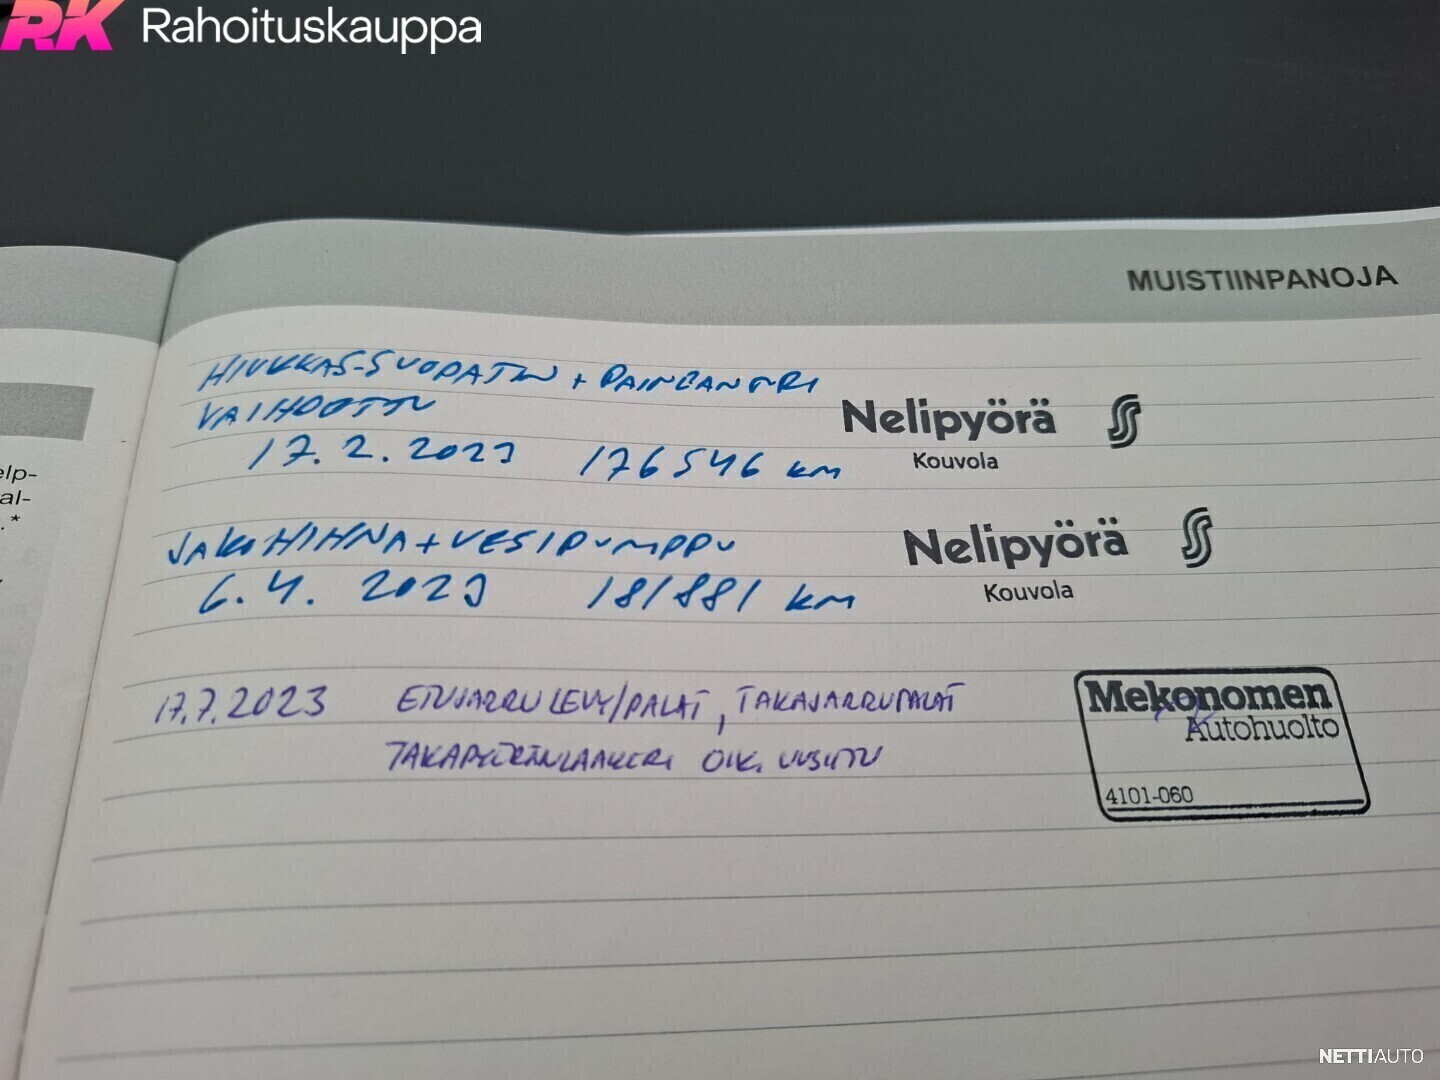 RK Rahoituskauppa
MUISTIINPANOJA
HIUKKAS-SUODATIN + PAINEANTURI
VAIHDETTU
17.2.2023 176546 km
Nelipyörä
Kouvola
JAKOHIHNA + VESIPUMPPU
6.4.2023 181881 km
Nelipyörä
Kouvola
17.7.2023 ETUJARRULEVY/PALAT, TAKAJARRUPALAT
TAKAPYÖRÄNLAAKERI OIK. UUSITTU
Mekonomen
Autohuolto
4101-060
elp-
al-
.*
NETTIAUTO